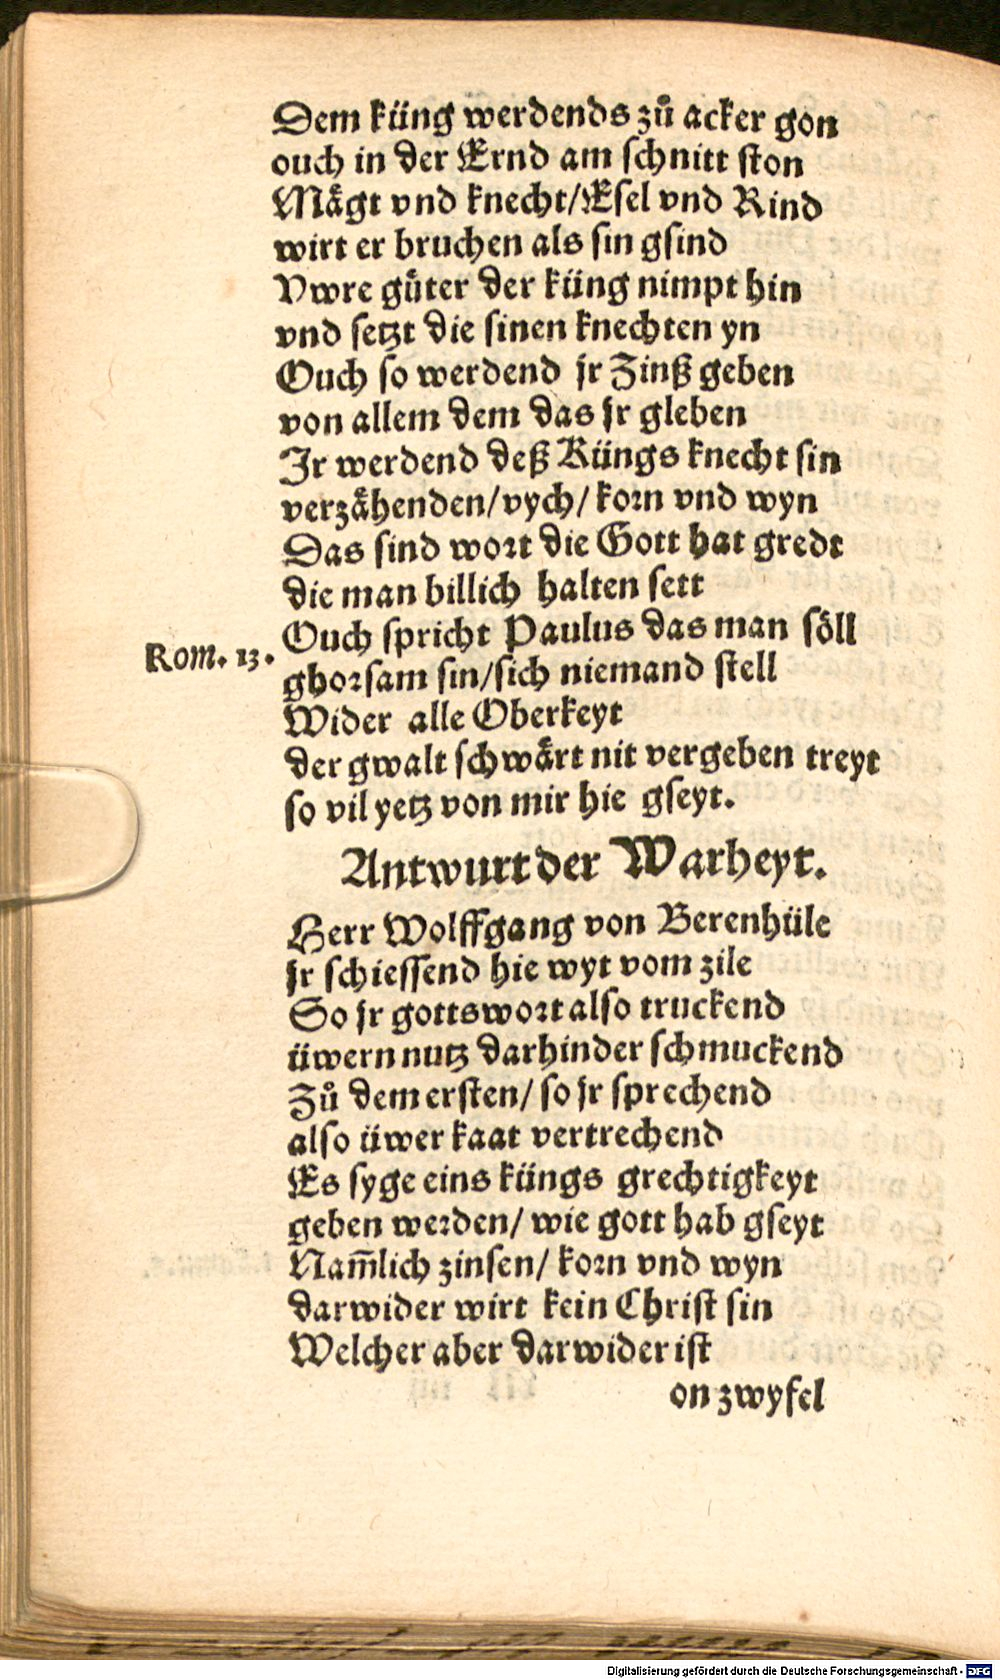 Dem küng werdends zů acker gon
ouch in der Ernd am schnitt ston
Mågt vnd knecht/Esel vnd Rind
wirt er bruchen als sin gsind
Vwre gůter der küng nimpt hin
vnd setzt die sinen knechten yn
Ouch so werdend jr Zinß geben
von allem dem das jr gleben
Jr werdend deß Küngs knecht sin
verzåhenden/vych/korn vnd wyn
Das sind wort die Gott hat gredt
die man billich halten sett
Rom. 13. Ouch spricht Paulus das man söll
ghorsam sin/sich niemand stell
Wider alle Oberkeyt
der gwalt schwårt nit vergeben treyt
so vil yetz von mir hie gseyt.
Antwurt der Warheyt.
Herr Wolffgang von Berenhüle
jr schiessend hie wyt vom zile
So jr gottswort also truckend
üwern nutz darhinder schmuckend
Zů dem ersten/so jr sprechend
also üwer kaat vertrechend
Es syge eins küngs grechtigkeyt
geben werden/wie gott hab gseyt
Nam̄lich zinsen/korn vnd wyn
darwider wirt kein Christ sin
Welcher aber darwider ist
on zwyfel
Digitalisierung gefördert durch die Deutsche Forschungsgemeinschaft - DFG